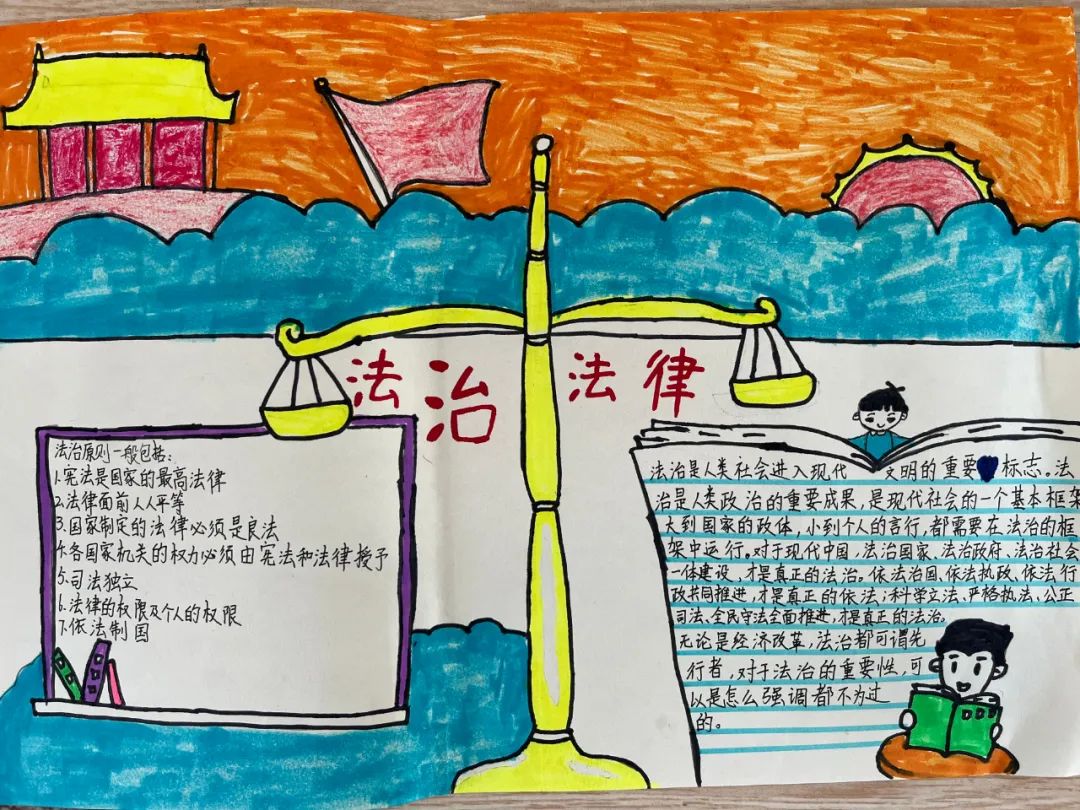 法治 法律
法治原则一般包括：
1.宪法是国家的最高法律
2.法律面前人人平等
3.国家制定的法律必须是良法
4.各国家机关的权力必须由宪法和法律授予
5.司法独立
6.法律的权限及个人的权限
7.依法制国
法治是人类社会进入现代 文明的重要标志。法
治是人类政治的重要成果，是现代社会的一个基本框架
大到国家的政体，小到个人的言行，都需要在法治的框
架中运行。对于现代中国，法治国家、法治政府、法治社会
一体建设，才是真正的法治。依法治国、依法执政、依法行
政共同推进，才是真正的依法；科学立法、严格执法、公正
司法、全民守法全面推进，才是真正的法治。
无论是经济改革，法治都可谓先
行者，对于法治的重要性，可
以是怎么强调都不为过
的。